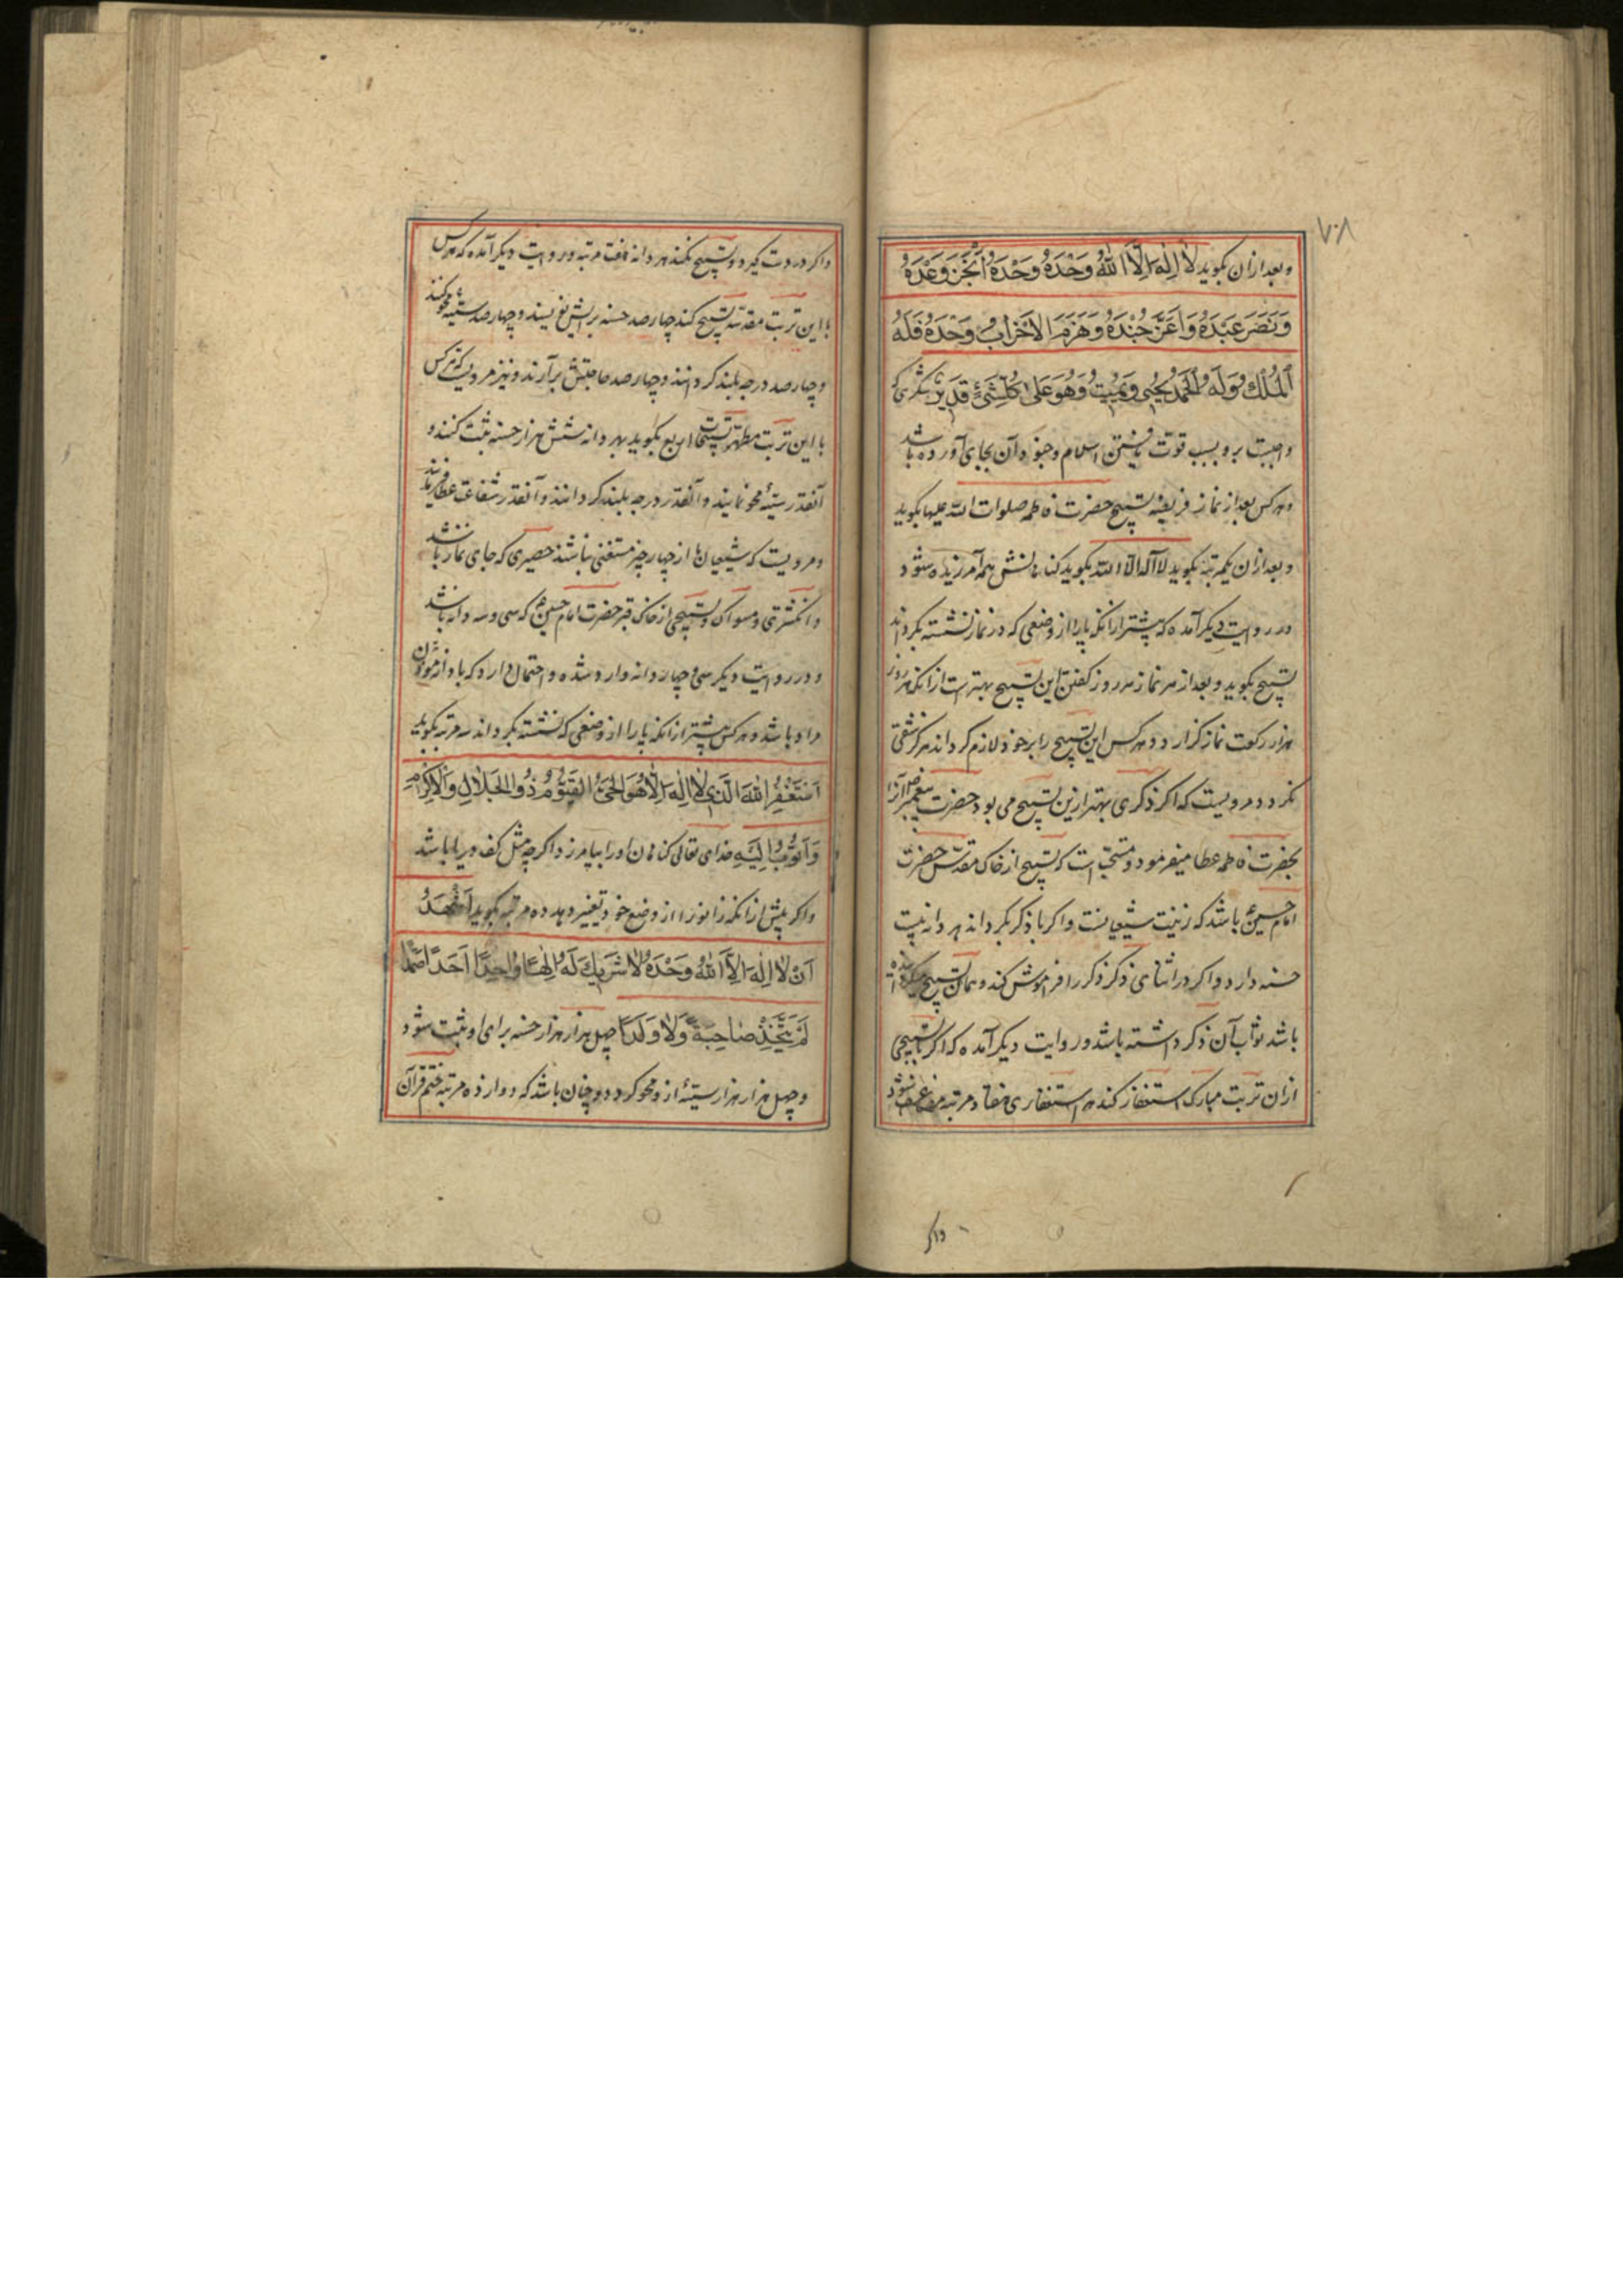 ۷۰۸
و بعد ازان بکوید لا اِلٰهَ اِلَّا اللهُ وَحْدَهُ وَحْدَهُ اَنْجَزَ وَعْدَهُ
وَنَصَرَ عَبْدَهُ وَاَعَزَّ جُنْدَهُ وَهَزَمَ الاَحْزابَ وَحْدَهُ فَلَهُ
اَلْمُلْكُ وَلَهُ الْحَمْدُ يُحْيِي وَيُمِيتُ وَهُوَ عَلىٰ كُلِّ شَيْءٍ قَدِيرٌ شکری که
واجبست برو بسبب قوّت یافتن اسلام و جنود آن بجای آورده باشد
و هرکس بعد از نماز فریضه تسبیح حضرت فاطمه صلوات الله علیها بکوید
و بعد ازان یکمرتبه بکوید لا آله الّا الله بکوید کناهانش همه آمرزیده شود
در روایت دیکر آمده که پیشتر ازانکه پا را از وضعی که در نماز نشسته بکرداند
تسبیح بکوید و بعد از هر نماز هر روز کفتن این تسبیح بهتر است ازانکه هر روز
هزار رکعت نماز کزارد و هرکس این تسبیح را بر خود لازم کرداند هرکز شقی
نکردد و مرویست که اکر ذکری بهتر ازین تسبیح می بود حضرت پیغمبر آنرا
بحضرت فاطمه عطا میفرمود و مستحبّ است که تسبیح از خاک مقدّس حضرت
امام حسین باشد که زینت شیعیانست و اکر با ذکر بکرداند بهر دانه بیست
حسنه دارد و اکر در اثنای ذکر ذکر را فراموش کند و همان تسبیح
باشد ثواب آن ذکر داشته باشد و روایت دیکر آمده که اکر با تسبیحی
ازان تربت مبارک استغفار کند هر استغفاری هفتاد مرتبه مضاعف شود
واکر
واکر در دست کیرد و تسبیح نکند هر دانه هفت مرتبه و روایت دیکر آمده که هرکس
با این تربت مقدسه تسبیح کند چهار صد حسنه برایش نویسند و چهار صد سیئه محو کنند
و چهار صد درجه بلند کردانند و چهار صد حاجتش برآرند و نیز مرویست که هرکس
با این تربت مطهّر تسبیحات اربع بکوید بهر دانه شش هزار حسنه ثبت کنند و
آنقدر سیئه محو نمایند و آنقدر درجه بلند کردانند و آنقدر شفاعت عطا فرمایند
و مرویست که شیعیان ما از چهار چیز مستغنی نباشند حصیری که جای نماز باشد
و انکشتری و مسواک و تسبیحی از خاک قبر حضرت امام حسین که سی و سه دانه باشد
و در روایت دیکر سی و چهار دانه وارد شده و احتمال دارد که با دانه مؤذن
مراد باشد و هرکس پیشتر ازانکه پا را از وضعی که نشسته بکرداند سه مرتبه بکوید
اَسْتَغْفِرُ اللهَ الَّذِي لا اِلٰهَ اِلَّا هُوَ الْحَيُّ الْقَيُّومُ ذُو الْجَلالِ وَالْاِكْرامِ
وَاَتُوبُ اِلَيْهِ خدای تعالی کناهان او را بیامرزد اکرچه مثل کف دریا باشد
و اکر پیش ازانکه زانو را از وضع خود تغییر دهد ده مرتبه بکوید اَشْهَدُ
اَنْ لا اِلٰهَ اِلَّا اللهُ وَحْدَهُ لا شَرِيكَ لَهُ اِلٰهًا واحِدًا اَحَدًا صَمَدًا
لَمْ يَتَّخِذْ صاحِبَةً وَلا وَلَدًا چهل هزار هزار حسنه برای او ثبت شود
و چهل هزار هزار سیئه از و محو کردد و چنان باشد که دوازده مرتبه ختم قرآن